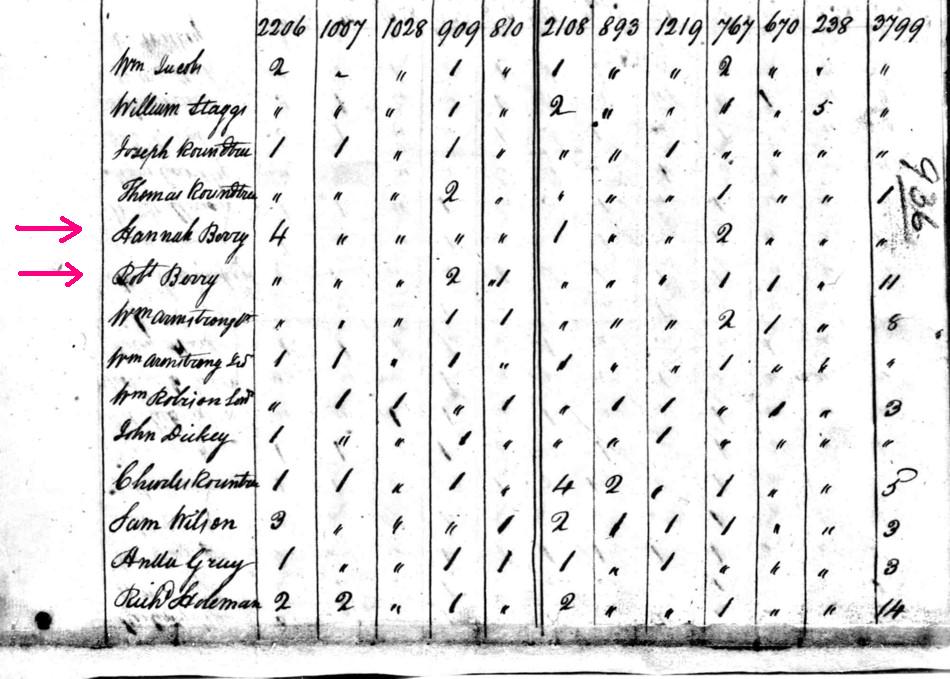 2206 1007 1028 909 810 2108 893 1219 767 670 238 3799
Wm Jacob 2 " " 1 " 1 " " 2 " " "
William Staggs " " " 1 " 2 " " 1 " 5 "
Joseph Roundtree 1 1 " 1 " " " 1 " " " "
Thomas Roundtree " " " 2 " " " " 1 " " 1
936
Hannah Berry 4 " " " " 1 " " 2 " " "
Robt Berry " " " 2 1 " " " 1 1 " 11
Wm Armstrong " " " 1 1 " " " 2 1 " 8
Wm Armstrong 1 1 " 1 " 1 " " 1 " " "
Wm Robison " 1 1 " 1 " 1 1 " 1 " 3
John Dickey 1 " " 1 " " " 1 " " " "
Charles Rountree 1 1 " 1 " 4 2 " 1 " " 5
Sam Wilson 3 " " " 1 2 1 1 1 " " 3
Gray 1 " " 1 1 1 " 1 " " " 3
Richd Holeman 2 2 " 1 " 2 " " 1 " " 14